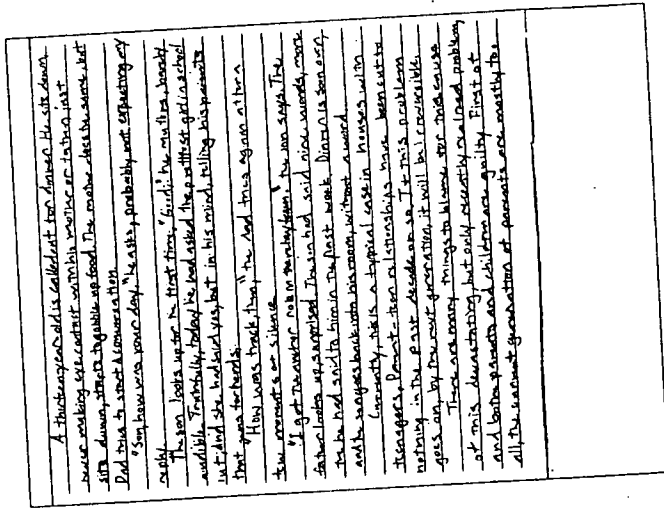 A thirteen year old is called out for dinner. He sits down,
never making eye contact with his mother or father, just
sits down, starts to gobble up food. The mother does the same, but
Dad tries to start a conversation.
"Son, how was your day," he asks, probably not expecting any
reply.
The son looks up for the first time, "Good," he mutters, barely
audible. Truthfully, today he had asked the prettiest girl in school
out, and she had said yes, but in his mind, telling his parents
that was forbidden.
"How was track, then," the dad tries again after a
few moments of silence.
"I got the number 1 in the," the son says. The
father looks up, surprised. The son had said nine words, more
than he had said to him in the past week. Dinner is soon over,
and the teen goes back into his room without a word.
Currently, this is a typical case in houses with
teenagers. Parent-teen relationships have been cut to
nothing in the past decade or so. If this problem
goes on, by the next generation, it will be irreversible.
There are many things to blame for this cause
of this devastating, but only recently realized problem,
and both parents and children are guilty. First of
all, the current generation of parents are mostly too